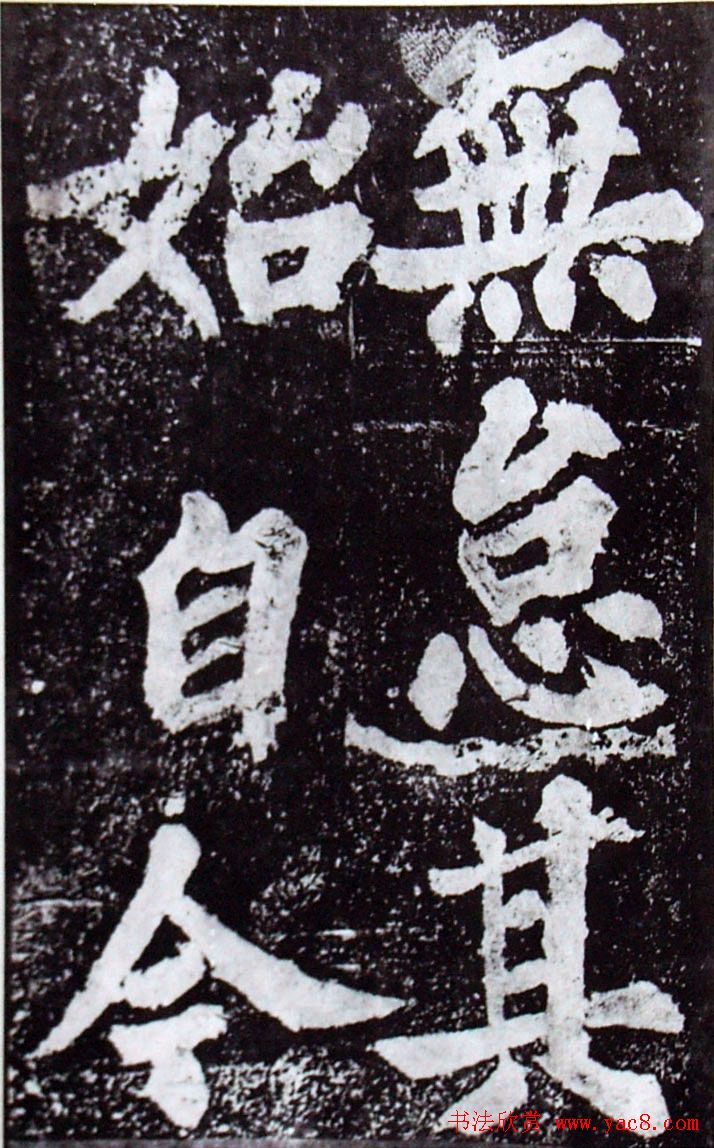 無怠其
始自今
书法欣赏 www.yac8.com